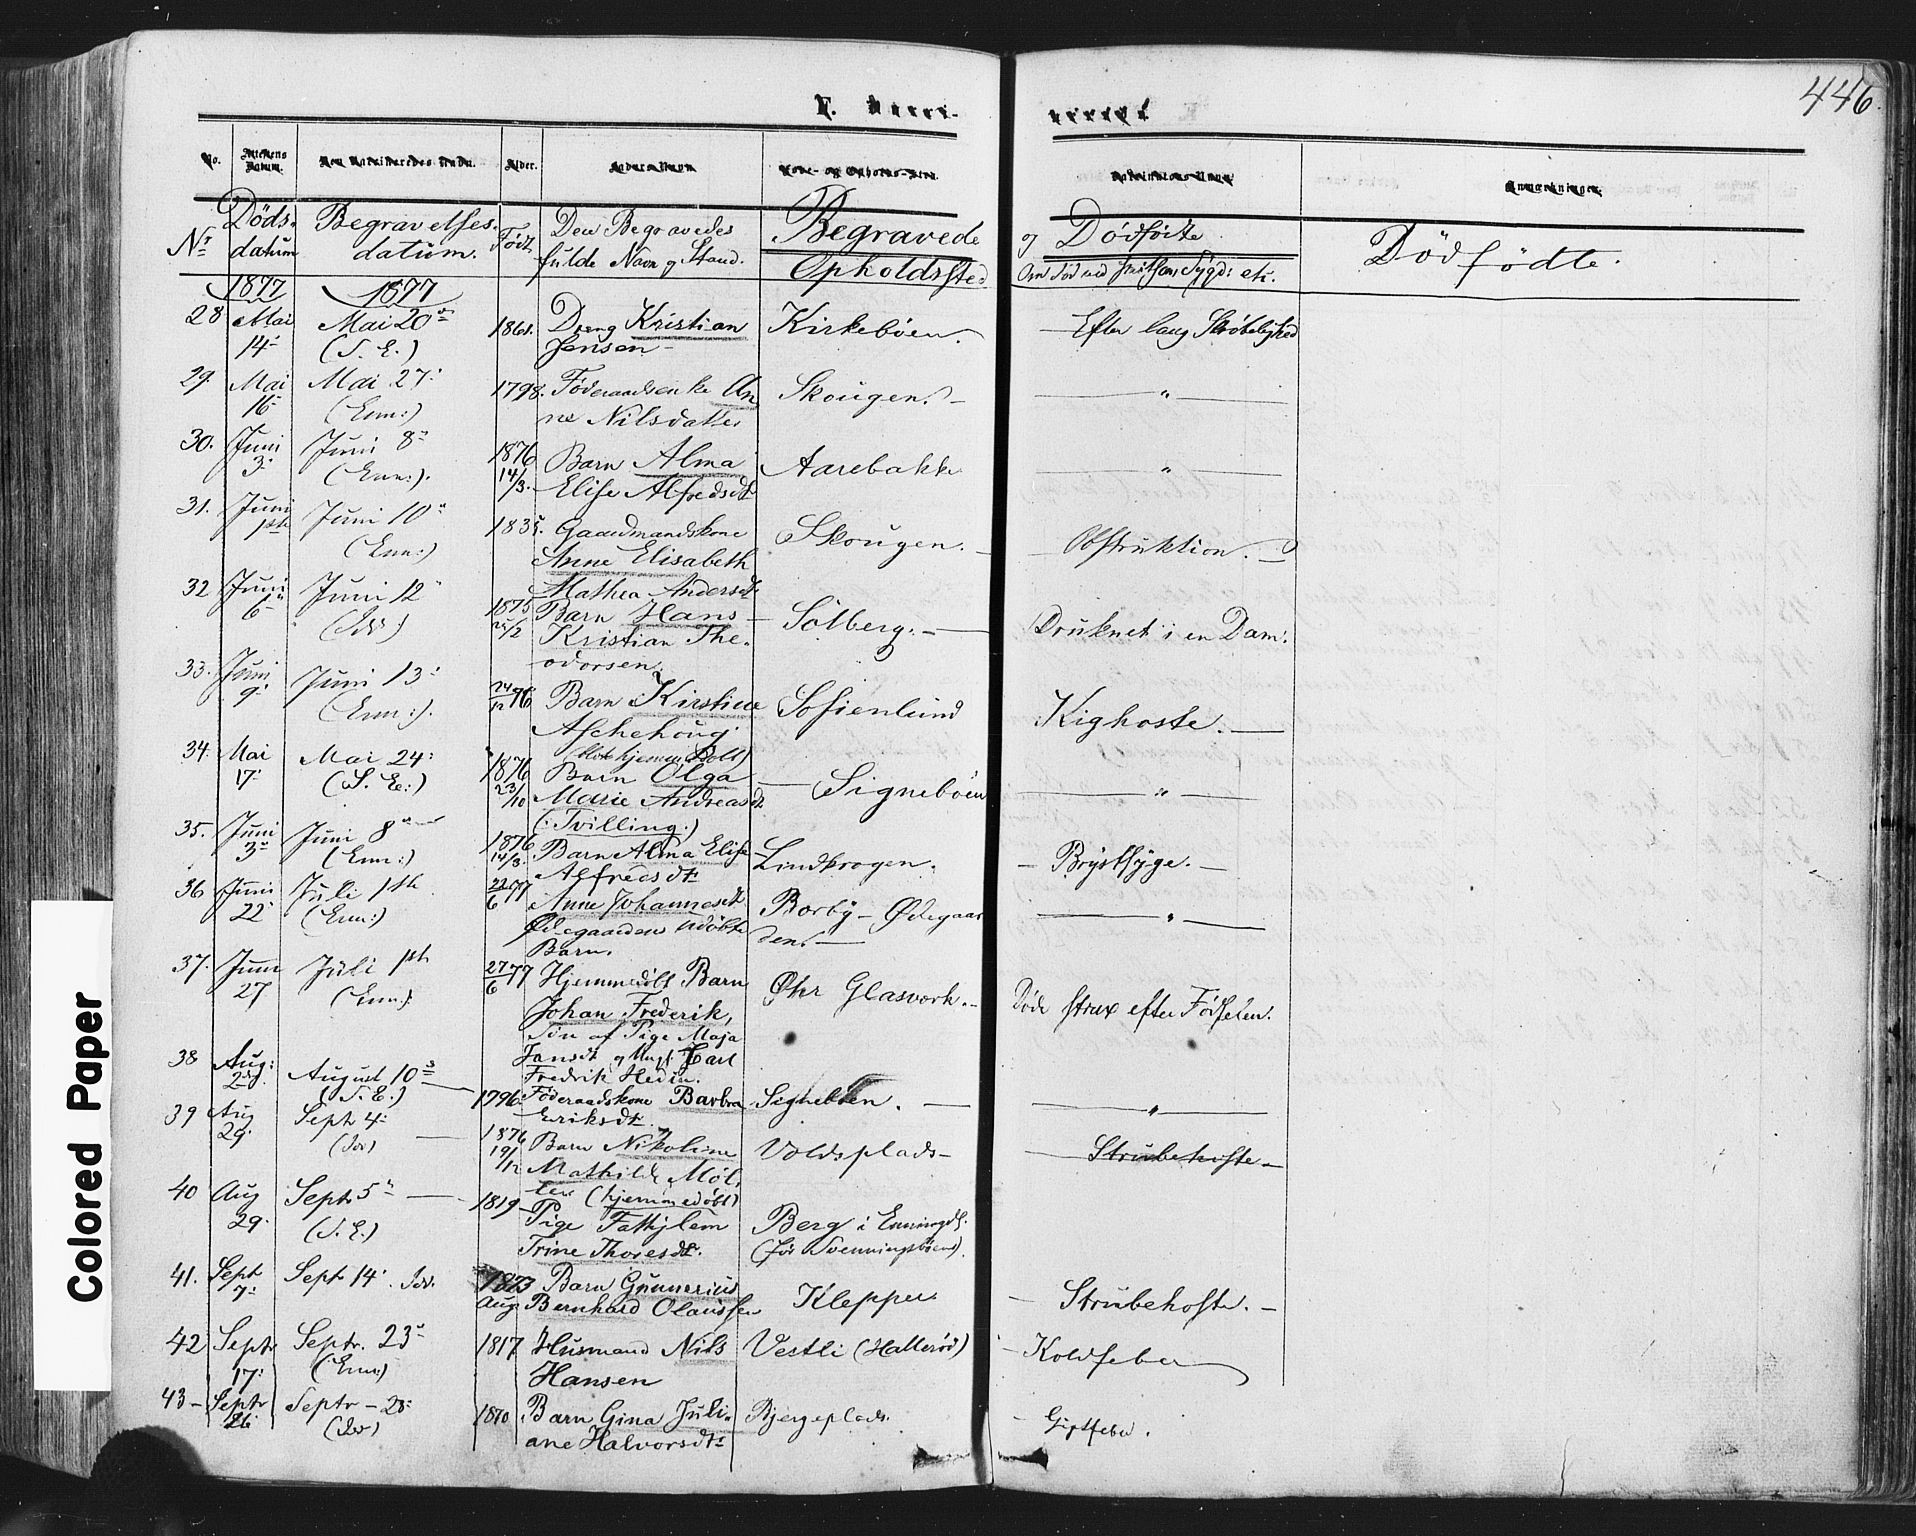 446.
No. Datum. Alder.
Anmærkninger.
Nr Dødsdatum Begravelsesdatum. Født Den Begravedes fulde Navn og Stand. Begravede Opholdssted og Dødfødte Dødfødte.
1877 1877
28 Mai 14 Mai 20 (I. E.) 1861. Dreng Kristian Jensen Kirkebøen. Efter lang Skrøbelighed
29. Mai 16 Mai 27 (Enn:) 1798. Føderaadsenke Anne Nilsdatter Skougen. — " —
30. Juni 3 Juni 8 (Enn:). 1876 14/3. Barn Alma Elise Alfredsdt Aarebakke — " —
31. Juni Juni 10 (Enn:) 1835. Gaardmandskone Anne Elisabeth Mathea Andersdt Skougen. — Obstruktion. —
32 Juni 6 Juni 12 (Idd:) 1875 Barn Hans Kristian Theodorsen. Solberg. — Druknet i en Dam.
33. Juni 9 Juni 13 (Enn:). 24/12 76 Barn Kirstine Aschehoug Sofienlund Kighoste. —
34. Mai 17 Mai 24 (S. E:) 1876 23/10 Barn Olga Marie Andreasdt (: Tvilling:) — Signebøen — " —
35. Juni 3 Juni 8 (Enn:) 1876 14/3. Barn Alma Elise Alfredsdt Lindkrogen. — Brystsyge. —
36 Juni 22 Juli 1ste (Enn:) 22/6 77 Anne Johannesdt Ødegaardens udøbte Barn. Borby - Ødegaarden. — — " —
37. Juni 27 Juli 1ste (Enn:) 27/6 77 Hjemmedøbt Barn Johan Frederik, Søn af Pige Maja Jansdt og Ungk. Carl Fredrik Hedin. Glasværk. — Døde strax efter Fødselen.
38 Aug: August 10 (I. E.) 1796 Føderaadskone Barbra Eriksdt. Signebøen. — — " —
39 Aug 29. Sept 4 (Idd) 1876 19/12 Barn Nikoline Mathilde Møller (hjemmedøbt) Voldsplads — — Strubehoste —
40 Aug 29. Septr 5 (I. E.) 1819 — Pige Trine Thoresdt. Berg i Enningd. (før Svenningsbøens).
41. Sept 7: Sept 14. Idd. 1873 Aug Barn Gunnerius Bernhard Olaussen Klepper — Strubehoste. —
42 Septr 17: Septr. 23 (Enn:) 1817 Husmand Nils Hansen Vestli (Hallerød) — Koldfeber
43 — Septr 26 Septr — 28 (Idd) 1870 Barn Gina Juliane Halvorsdt Bjergeplads. — Gigtfeber.
Colored Paper